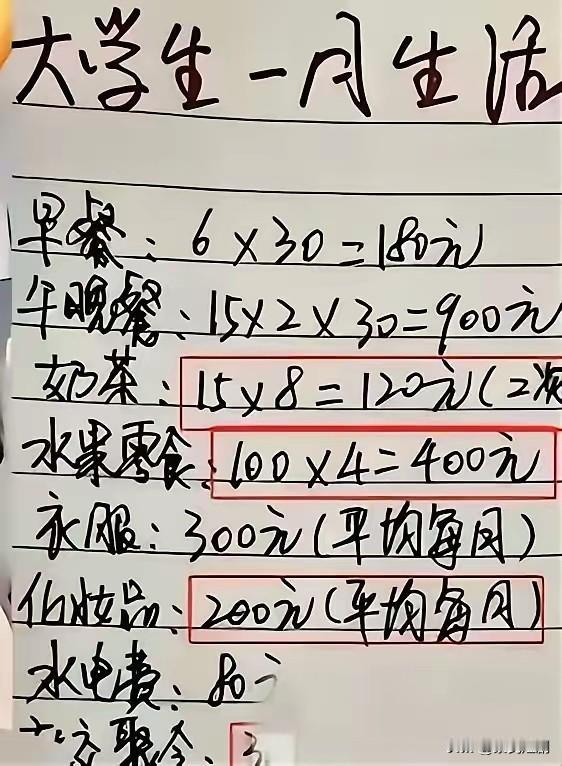 大学生一月生活
早餐：6×30=180元
午晚餐：15×2×30=900元
奶茶：15×8=120元(2次
水果零食：100×4=400元
衣服：300元(平均每月)
化妆品：200元(平均每月)
水电费：80
交聚会：3